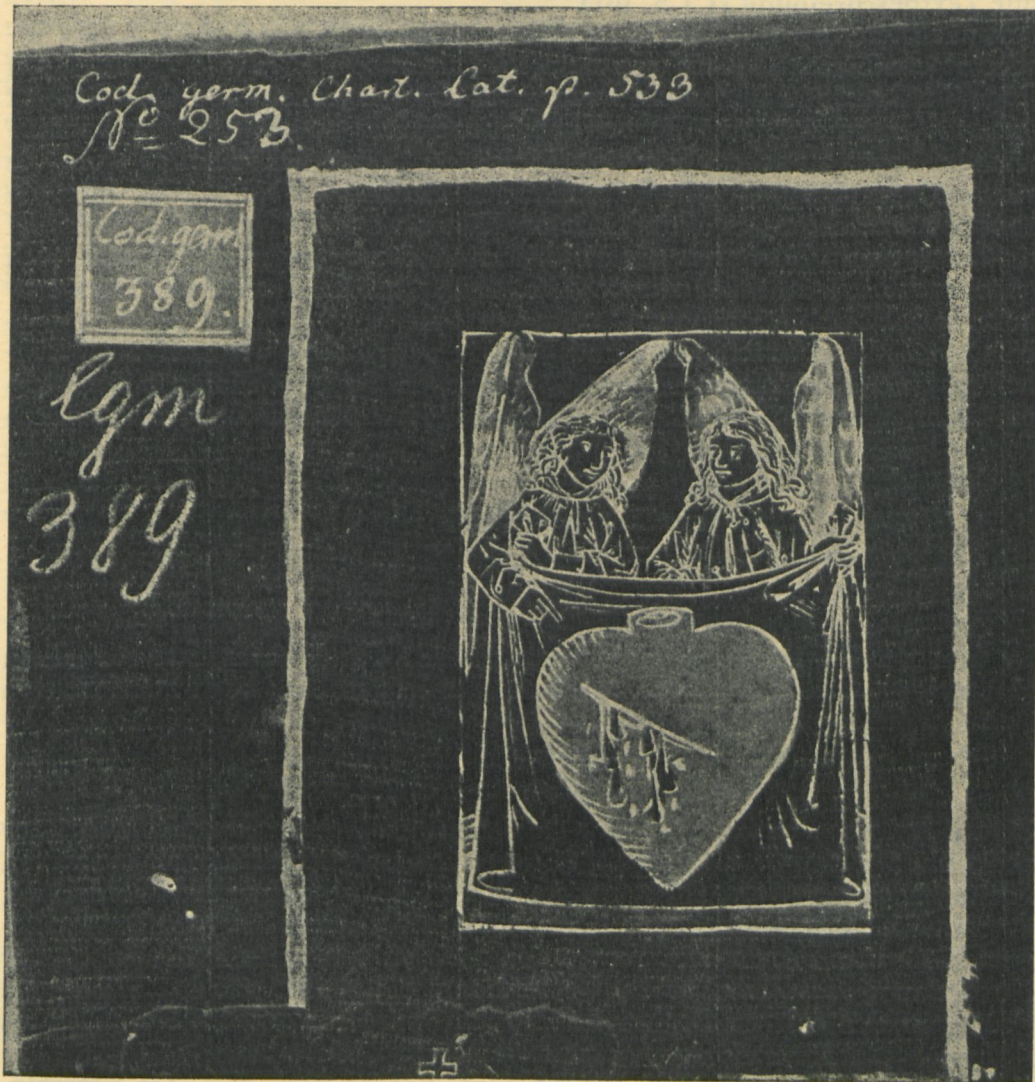 Cod. germ. Chart. Cat. p. 533
Nº 253.
Cod. germ.
389.
Cgm
389